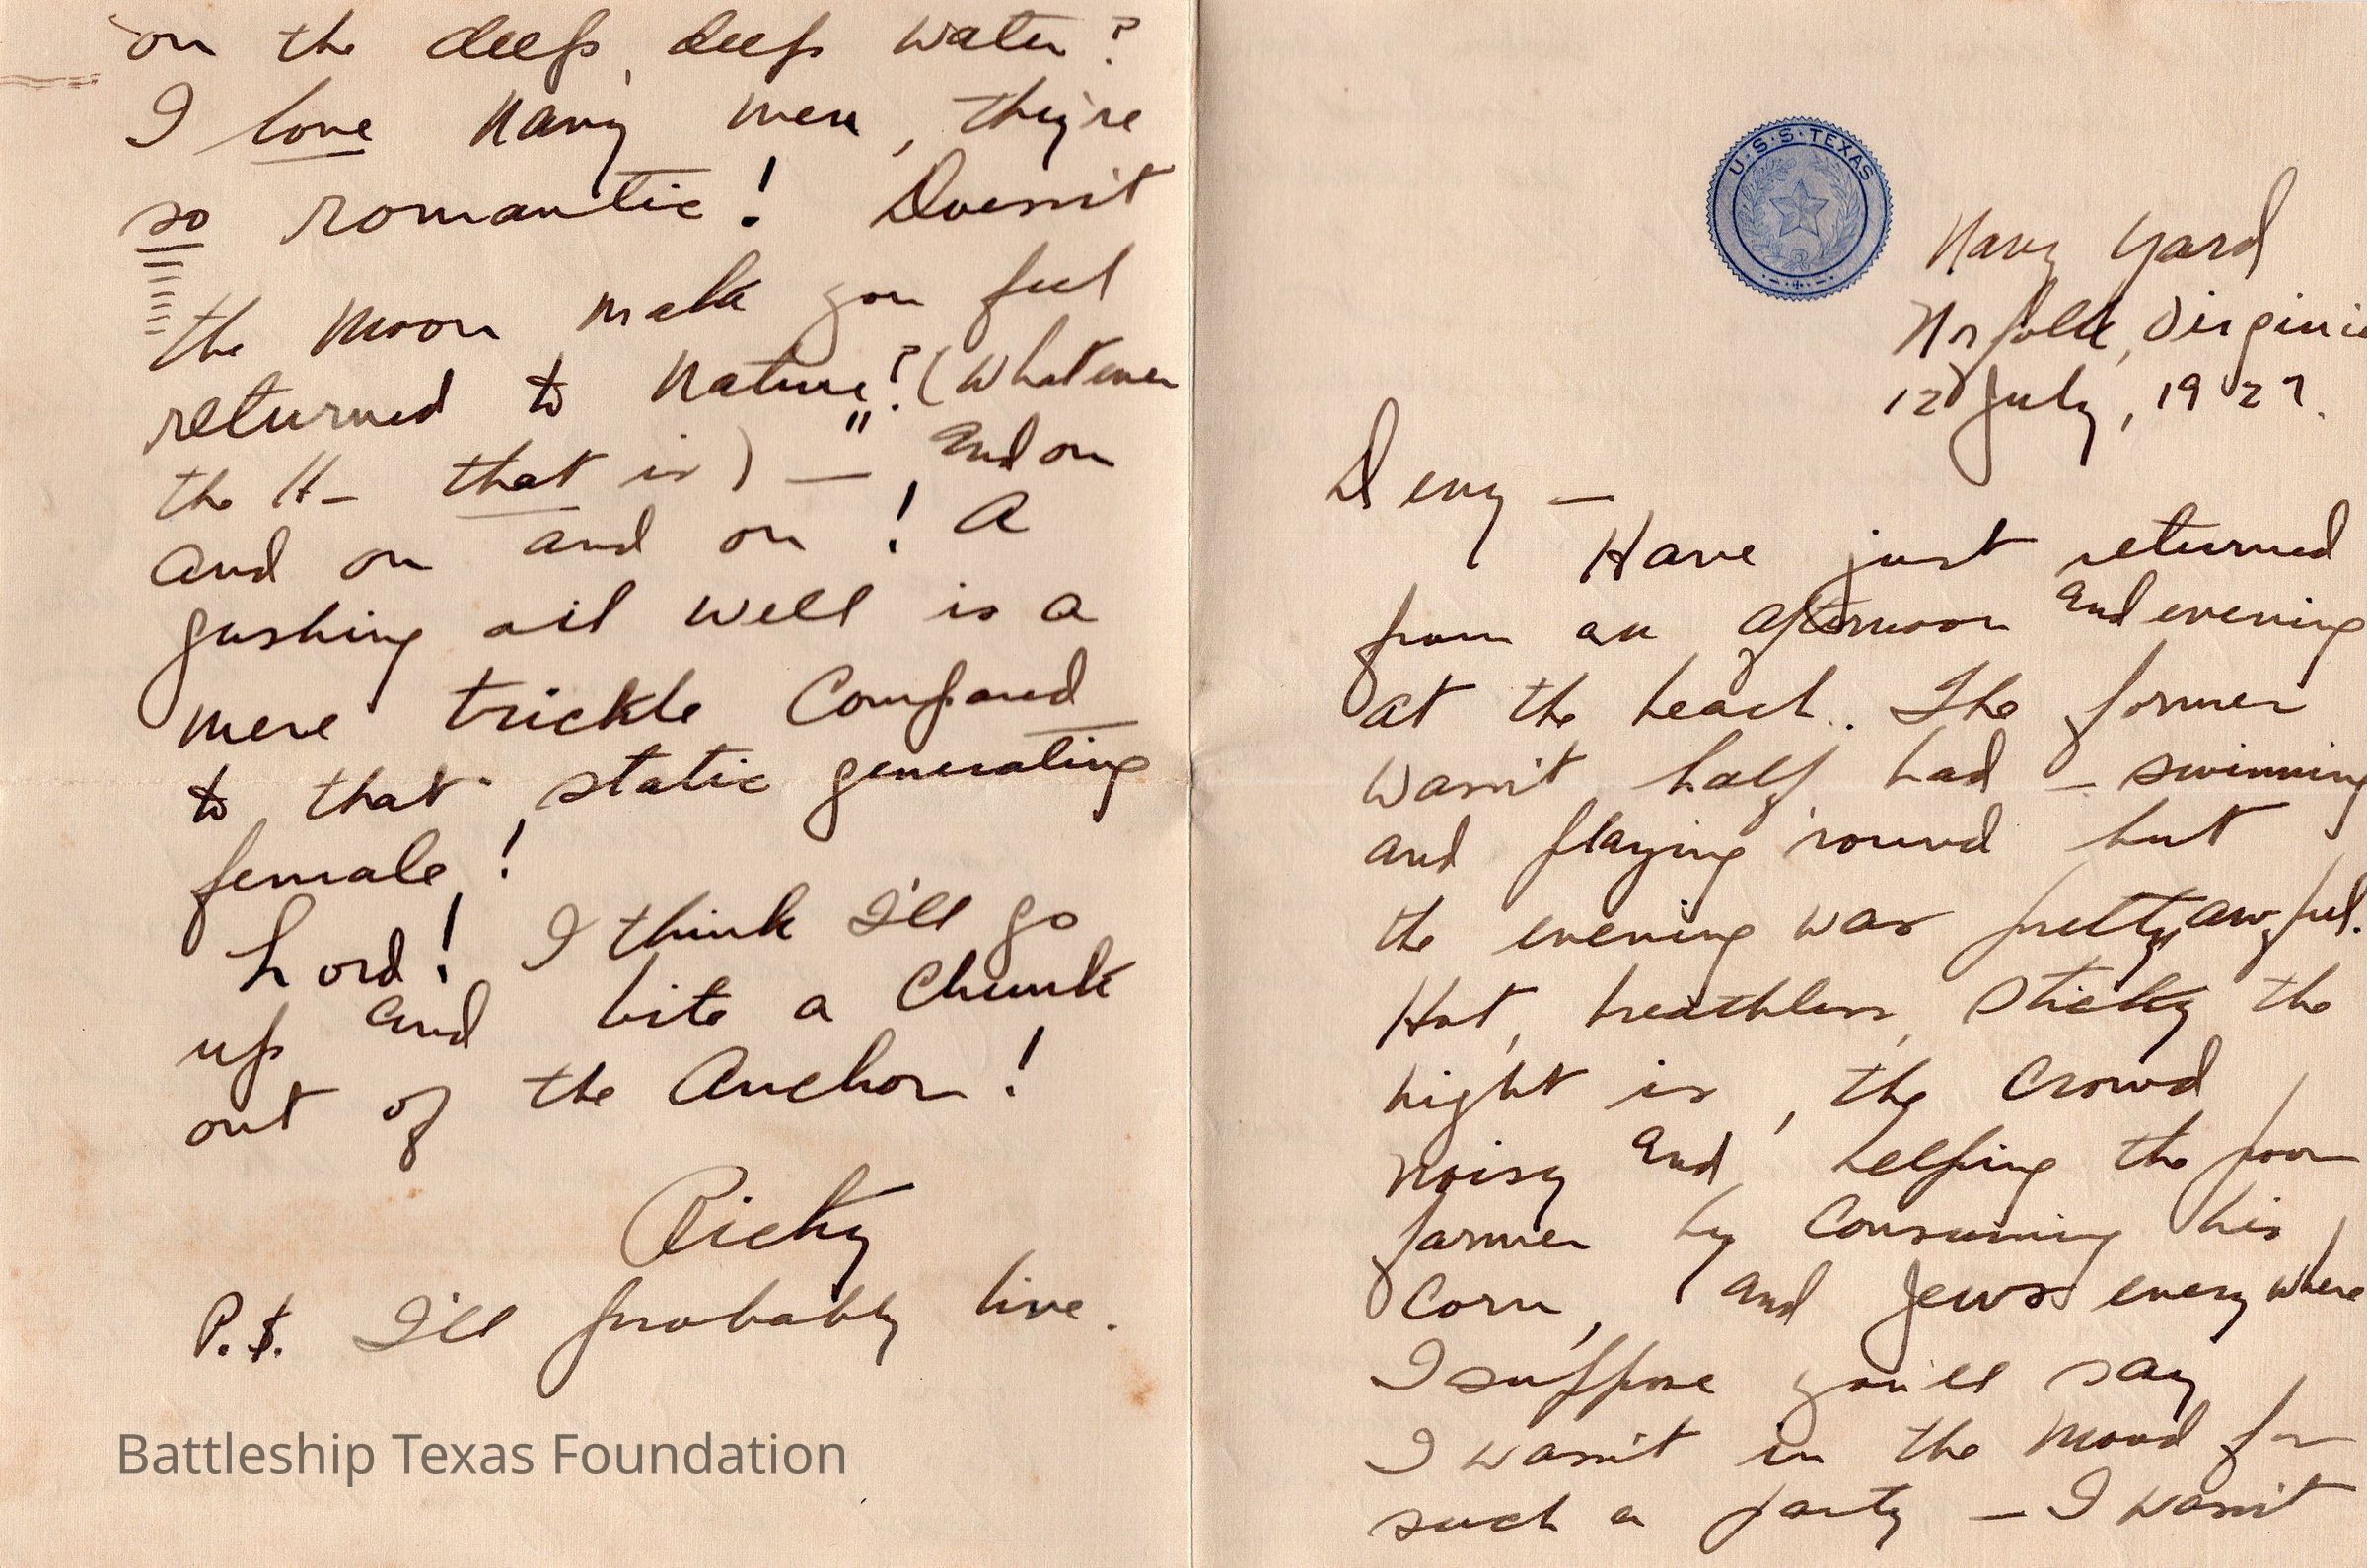 on the deep, deep water?
I love Navy men, they're
so romantic! Doesn't
the moon make you feel
returned to Nature?" (Whatever
the H– that is) — And on
and on and on! A
gushing oil well is a
mere trickle compared
to that static generating
female!
Lord! I think I'll go
up and bite a chunk
out of the anchor!
Ricky
P.S. I'll probably live.
Battleship Texas Foundation
U·S·S·TEXAS
Navy Yard
Norfolk, Virginia
12 July, 1927.
Deny —
Have just returned
from an afternoon and evening
at the beach. The former
wasn't half bad – swimming
and playing 'round but
the evening was pretty awful.
Hot, breathless, sticky the
night is, the crowd
noisy and helping the poor
farmer by consuming his
corn, and Jews everywhere
I suppose you'll say
I wasn't in the mood for
such a party – I wasn't